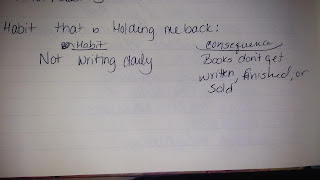 Habit that is Holding me back:
Habit consequence
Not writing daily Books don't get
written, finished, or
sold